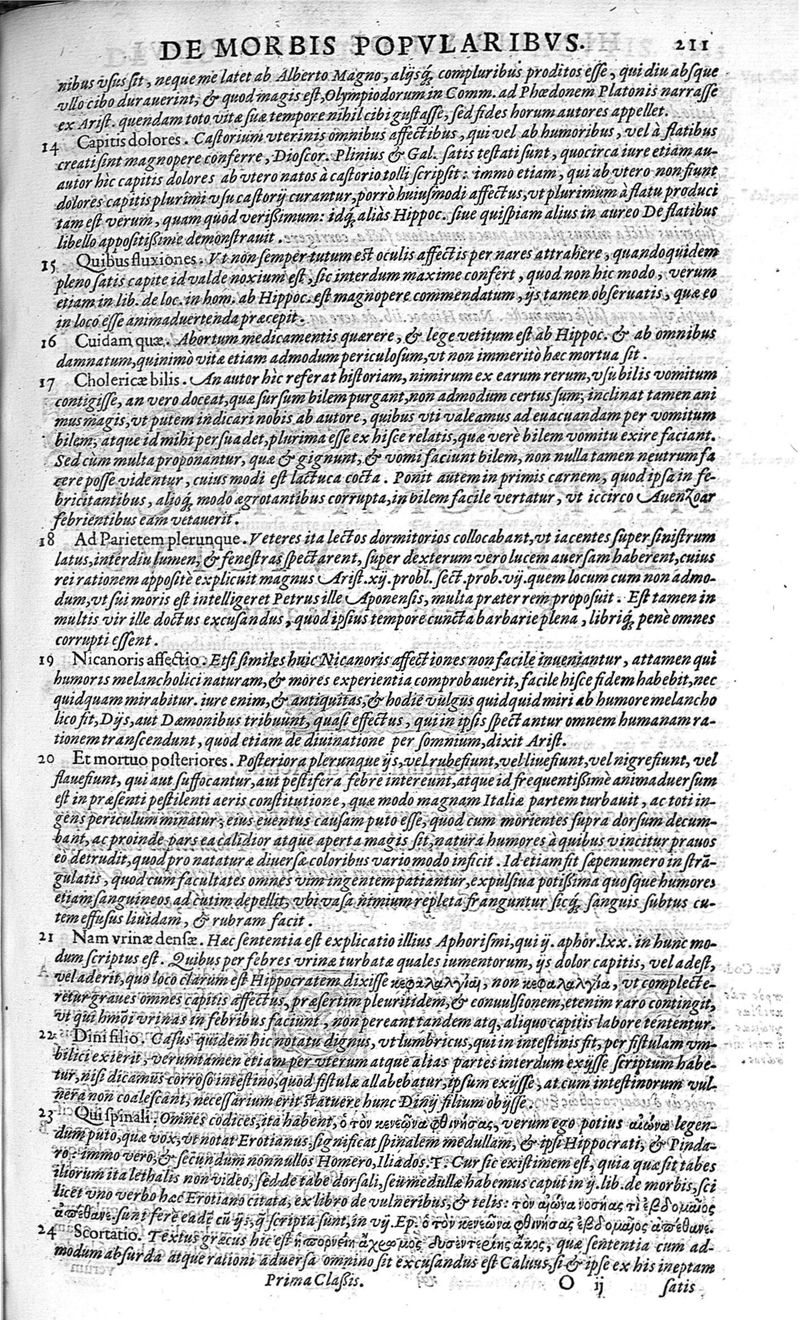 DE MORBIS POPVLARIBVS. 211
nibus vsus sit, neque me latet ab Alberto Magno, alijsq́; compluribus proditos esse, qui diu absque
vllo cibo durauerint, & quod magis est, Olympiodorum in Comm. ad Phœdonem Platonis narrasse
ex Arist. quendam toto vitæ suæ tempore nihil cibi gustasse, sed fides horum autores appellet.
14 Capitis dolores. Castorium vterinis omnibus affectibus, qui vel ab humoribus, vel à flatibus
creati sint magnopere conferre, Dioscor. Plinius & Gal. satis testati sunt, quocirca iure etiam au-
autor hic capitis dolores ab vtero natos à castorio tolli scripsit: immo etiam, qui ab vtero non fiunt
dolores capitis plurimi vsu castorij curantur, porrò huiusmodi affectus, vt plurimum à flatu produci
tam est verum, quam quod verissimum: idq́; aliàs Hippoc. siue quispiam alius in aureo De flatibus
libello appositissime demonstrauit.
15 Quibus fluxiones. Vt non semper tutum est oculis affectis per nares attrahere, quandoquidem
pleno satis capite id valde noxium est, sic interdum maxime confert, quod non hic modo, verum
etiam in lib. de loc. in hom. ab Hippoc. est magnopere commendatum, ijs tamen obseruatis, quæ eo
in loco esse animaduertenda præcepit.
16 Cuidam quæ. Abortum medicamentis quærere, & lege vetitum est ab Hippoc. & ab omnibus
damnatum, quinimò vitæ etiam admodum periculosum, vt non immeritò hæc mortua sit.
17 Cholericæ bilis. An autor hìc referat historiam, nimirum ex earum rerum, vsu bilis vomitum
contigisse, an vero doceat, quæ sursum bilem purgant, non admodum certus sum; inclinat tamen ani
mus magis, vt putem indicari nobis ab autore, quibus vti valeamus ad euacuandam per vomitum
bilem, atque id mihi persuadet, plurima esse ex hisce relatis, quæ verè bilem vomitu exire faciant.
Sed cùm multa proponantur, quæ & gignunt, & vomi faciunt bilem, non nulla tamen neutrum fa
cere posse videntur, cuius modi est lactuca cocta. Ponit autem in primis carnem, quod ipsa in fe-
bricitantibus, alioq́; modo ægrotantibus corrupta, in bilem facile vertatur, vt iccirco Auenzoar
febrientibus eam vetauerit.
18 Ad Parietem plerunque. Veteres ita lectos dormitorios collocabant, vt iacentes super sinistrum
latus, interdiu lumen, & fenestras spectarent, super dexterum vero lucem auersam haberent, cuius
rei rationem appositè explicuit magnus Arist. xij. probl. sect. prob. vij. quem locum cum non admo-
dum, vt sui moris est intelligeret Petrus ille Aponensis, multa præter rem proposuit. Est tamen in
multis vir ille doctus excusandus, quod ipsius tempore cuncta barbarie plena, libriq́; penè omnes
corrupti essent.
19 Nicanoris affectio. Etsi similes huic Nicanoris affectiones non facile inueniantur, attamen qui
humoris melancholici naturam, & mores experientia comprobauerit, facile hisce fidem habebit, nec
quidquam mirabitur. iure enim, & antiquitas, & hodie vulgus quidquid miri ab humore melancho
lico fit, Dijs, aut Dæmonibus tribuunt, quasi effectus, qui in ipsis spectantur omnem humanam ra-
tionem transcendunt, quod etiam de diuinatione per somnium, dixit Arist.
20 Et mortuo posteriores. Posteriora plerunque ijs, vel rubefiunt, vel liuefiunt, vel nigrefiunt, vel
flauefiunt, qui aut suffocantur, aut pestifera febre intereunt, atque id frequentissimè animaduersum
est in præsenti pestilenti aeris constitutione, quæ modo magnam Italiæ partem turbauit, ac toti in-
gens periculum minatur; eius euentus causam puto esse, quod cum morientes supra dorsum decum-
bant, ac proinde pars ea calidior atque aperta magis sit, natura humores à quibus vincitur prauos
eo detrudit, quod pro naturæ diuersæ coloribus vario modo inficit. Id etiam fit sæpenumero in strā-
gulatis, quod cum facultates omnes vim ingentem patiantur, expulsiua potissima quosque humores
etiam sanguineos ad cutim depellit, vbi vasa nimium repleta franguntur sicq́; sanguis subtus cu-
tem effusus liuidam, & rubram facit.
21 Nam vrinæ densæ. Hæc sententia est explicatio illius Aphorismi, qui ij. aphor. lxx. in hunc mo-
dum scriptus est. Quibus per febres vrinæ turbatæ quales iumentorum, ijs dolor capitis, vel adest,
vel aderit, quo loco clarum est Hippocratem dixisse κεφαλαλγίαι, non κεφαλαλγία, vt complecte-
retur graues omnes capitis affectus, præsertim pleuritidem, & conuulsionem, etenim raro contingit,
vt qui hmōi vrinas in febribus faciunt, non pereant tandem atq, aliquo capitis labore tententur.
22 Dini filio. Casus quidem hic notatu dignus, vt lumbricus, qui in intestinis fit, per fistulam vm-
bilici exierit, verumtamen etiam per vterum atque alias partes interdum exijsse scriptum habe-
tur, nisi dicamus corroso intestino, quod fistulæ allabebatur, ipsum exijsse, at cum intestinorum vul-
nera non coalescant, necessarium erit statuere hunc Dinij filium obijsse.
23 Qui spinali. Omnes codices, ita habent, ὁ τὸν κενεῶνα φθινήσας, verum ego potius αἰῶνα legen-
dum puto, quæ vox, vt notat Erotianus, significat spinalem medullam, & ipsi Hippocrati, & Pinda-
ro: immo vero, & secundum nonnullos Homero, Iliados. T. Cur sic existimem est, quia quæ sit tabes
iliorum ita lethalis non video, sed de tabe dorsali, seu medullæ habemus caput in ij. lib. de morbis, sci
licet vno verbo hæc Erotiano citata, ex libro de vulneribus, & telis: τὸν αἰῶνα νοσήσας τὶ ἑβδομαῖος
ἀπέθανε. sunt ferè eadē cū ijs, q̃ scripta sunt, in vij. Ep. ὁ τὸν κενεῶνα φθινήσας ἑβδομαῖος ἀπέθανε.
24 Scortatio. Textus græcus hic est ἡ πορνείη ἄχρωμος δυσεντερίης ἄκος, quæ sententia cum ad-
modum absurda atque rationi aduersa omnino sit excusandus est Caluus, si & ipse ex his ineptam
Prima Classis. O ij satis